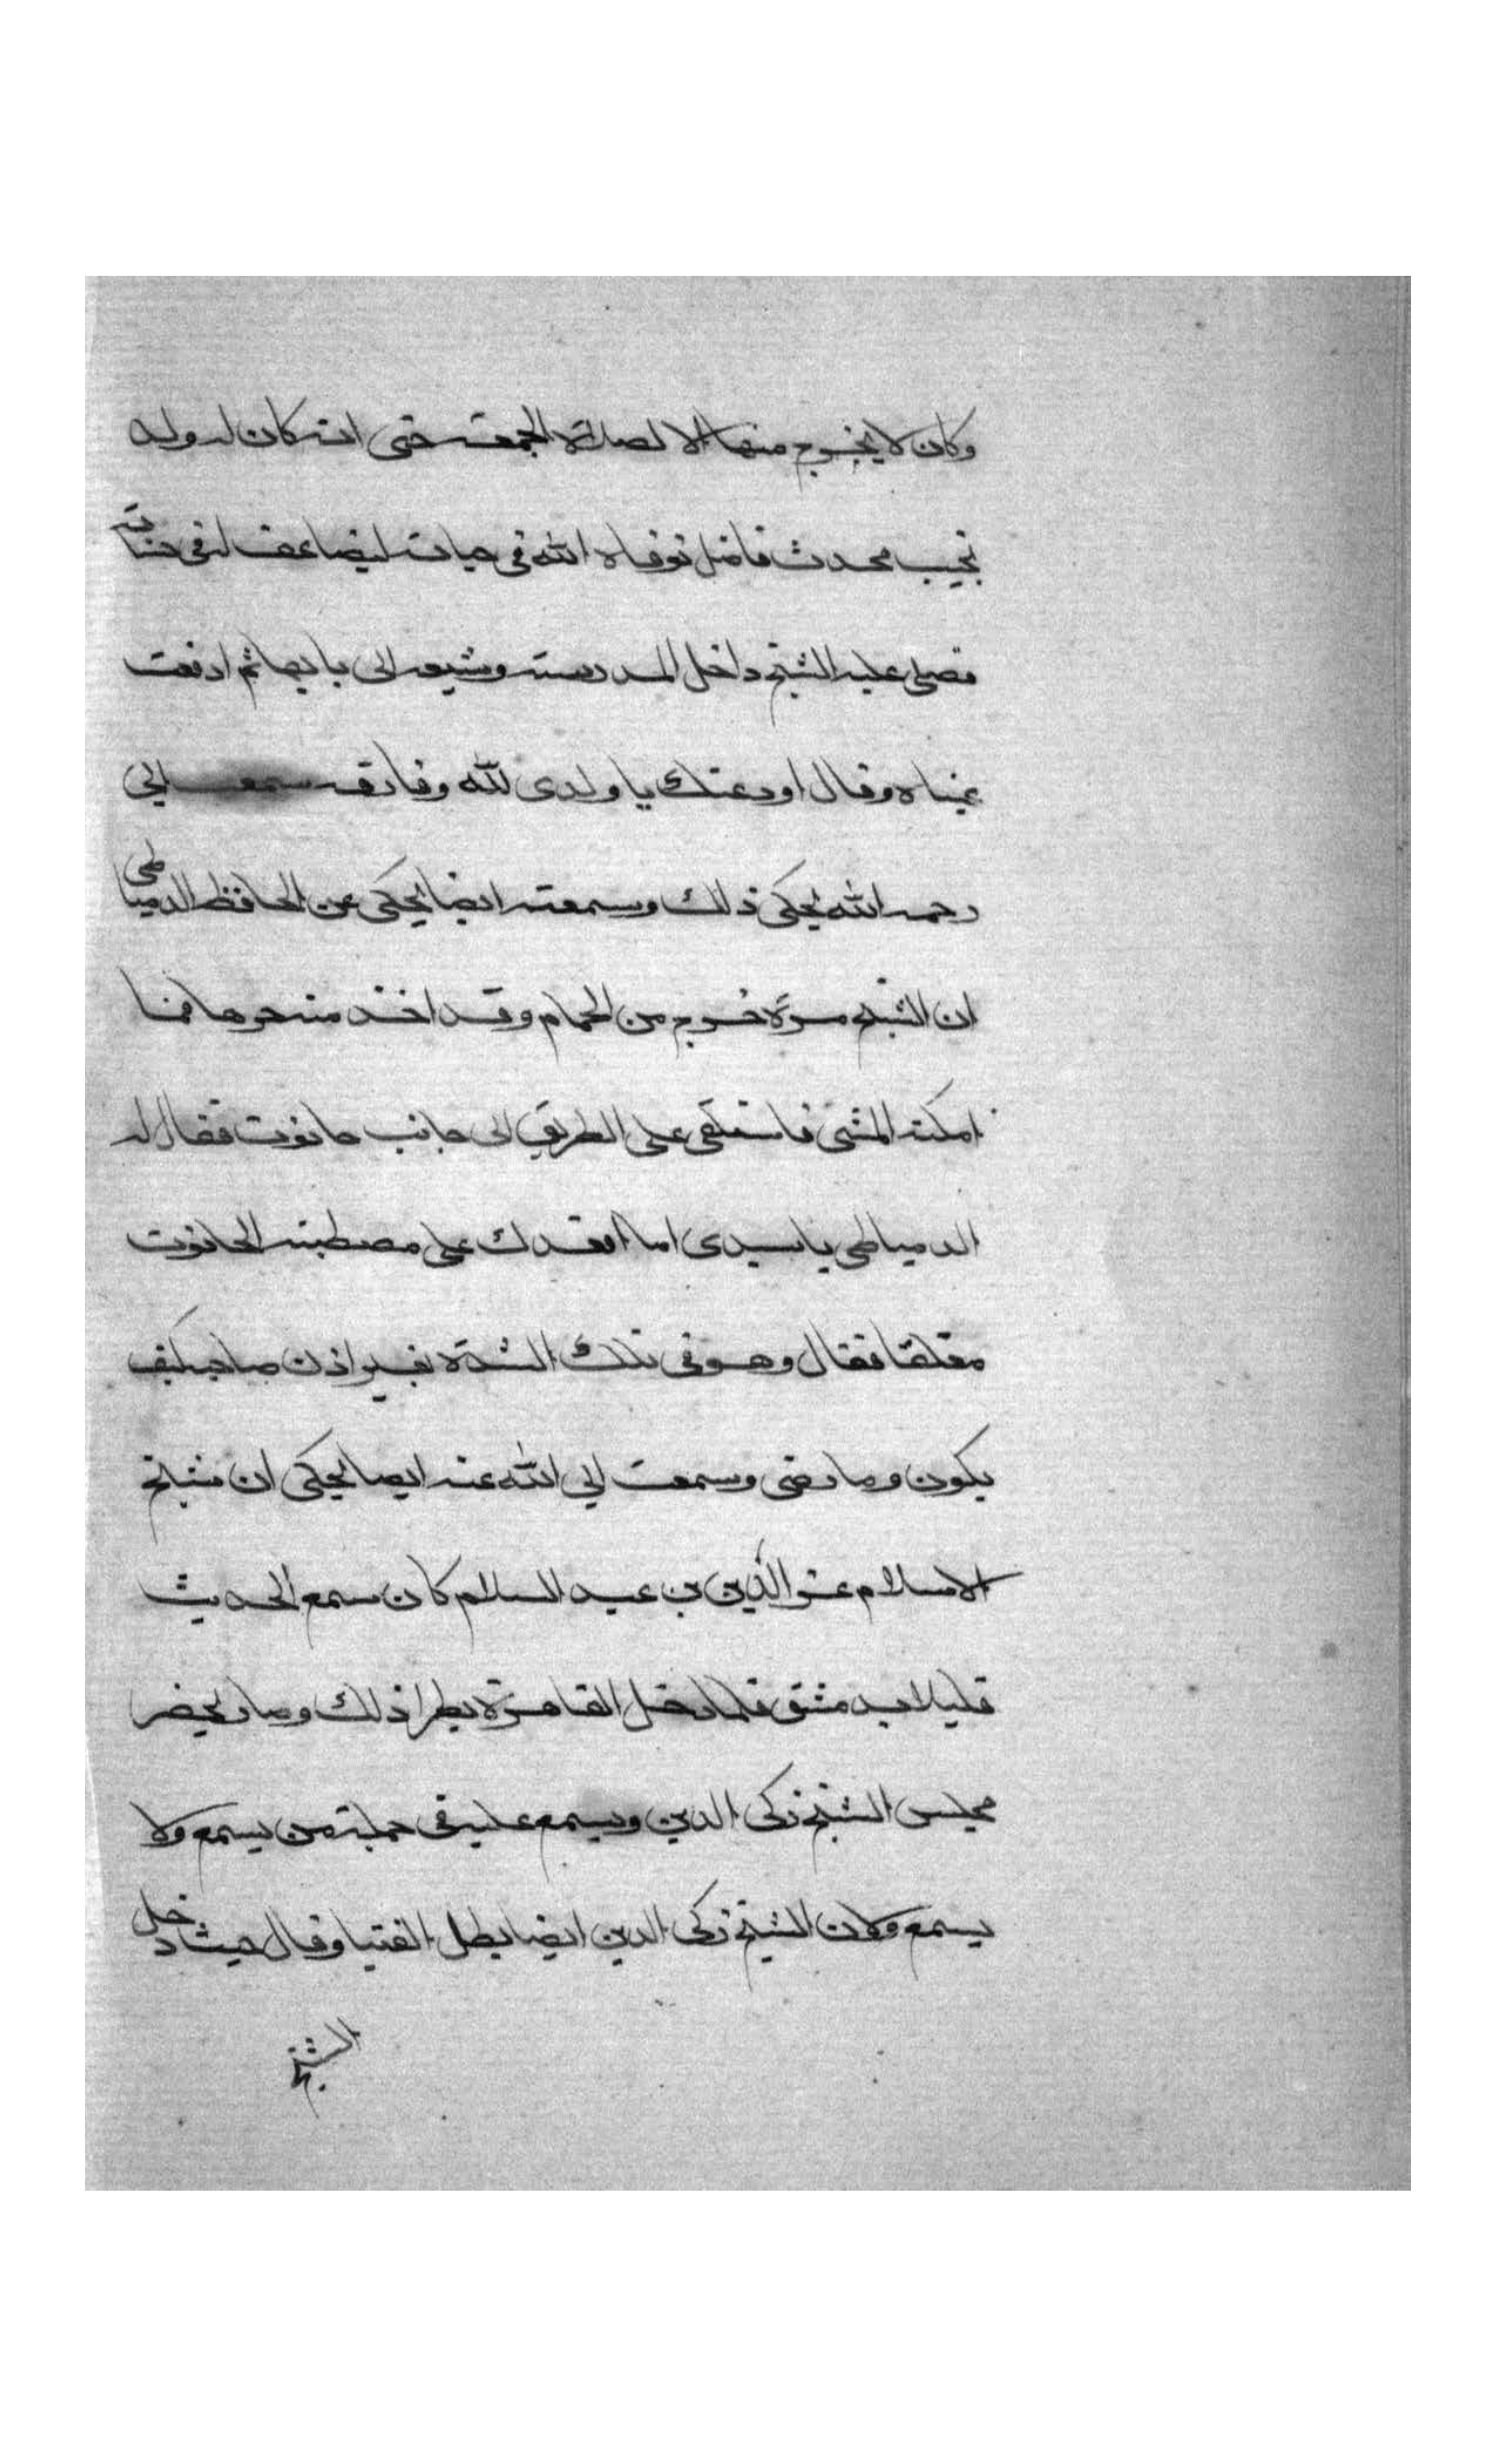 وكان لا يخرج منها الا لصلاة الجمعة حتى انه كان له ولد
نجيب محدث فاضل توفاه الله في حياته ليضاعف له في حسناته
فصلى عليه الشيخ داخل المدرسة وشيعه الى بابها ثم ادفعت
عيناه وقال اودعتك يا ولدي لله وفارقه سمعت ابي
رحمه الله يحكي ذلك وسمعته ايضا يحكي عن الحافظ الدمياطي
ان الشيخ مرة خرج من الحمام وقد اخذ منه حرها فما
امكنه المشي فاستلقى على الطريق الى جانب حانوت فقال له
الدمياطي يا سيدي اما اقعدك على مصطبة الحانوت
مغلقا فقال وهو في تلك الشدة بغير اذن صاحبه كيف
يكون وما رضى وسمعت ابي الله عنه ايضا يحكي ان شيخ
الاسلام عز الدين بن عبد السلام كان سمع الحديث
قليلا بدمشق فلما دخل القاهرة بطل ذلك وصار يحضر
مجلس الشيخ زكي الدين ويسمع عليه في جملة من يسمع ولا
يسمع وكان الشيخ زكي الدين ايضا بطل الفتيا وقال حيث دخل
الشيخ